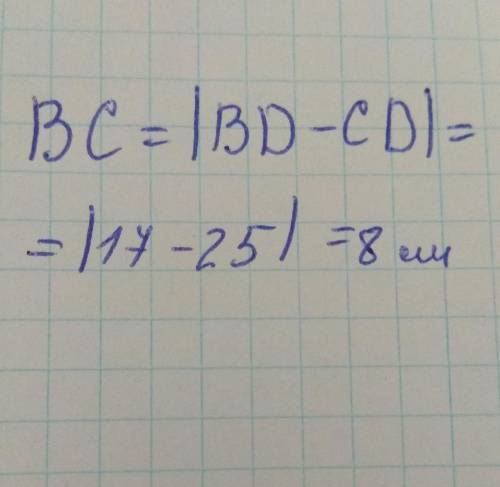 BC = |BD - CD| =
= |17 - 25| = 8 см